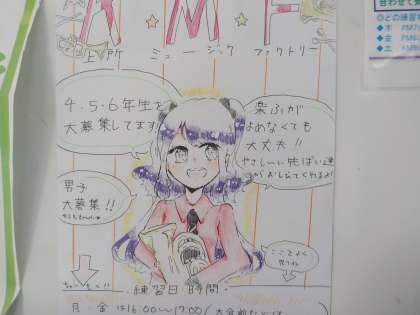 上所 ミュージック ファクトリー
4.5.6年生を
大募集してます
楽ふが
よめなくても
大丈夫!!
やさしい先ぱい達
がおしえてくれるよ!
男子
大募集!!
ここもよく
見てね
練習日 時間
月 金は16:00〜17:00
合わせて
◎どの練習
◆木
◆金
◆土